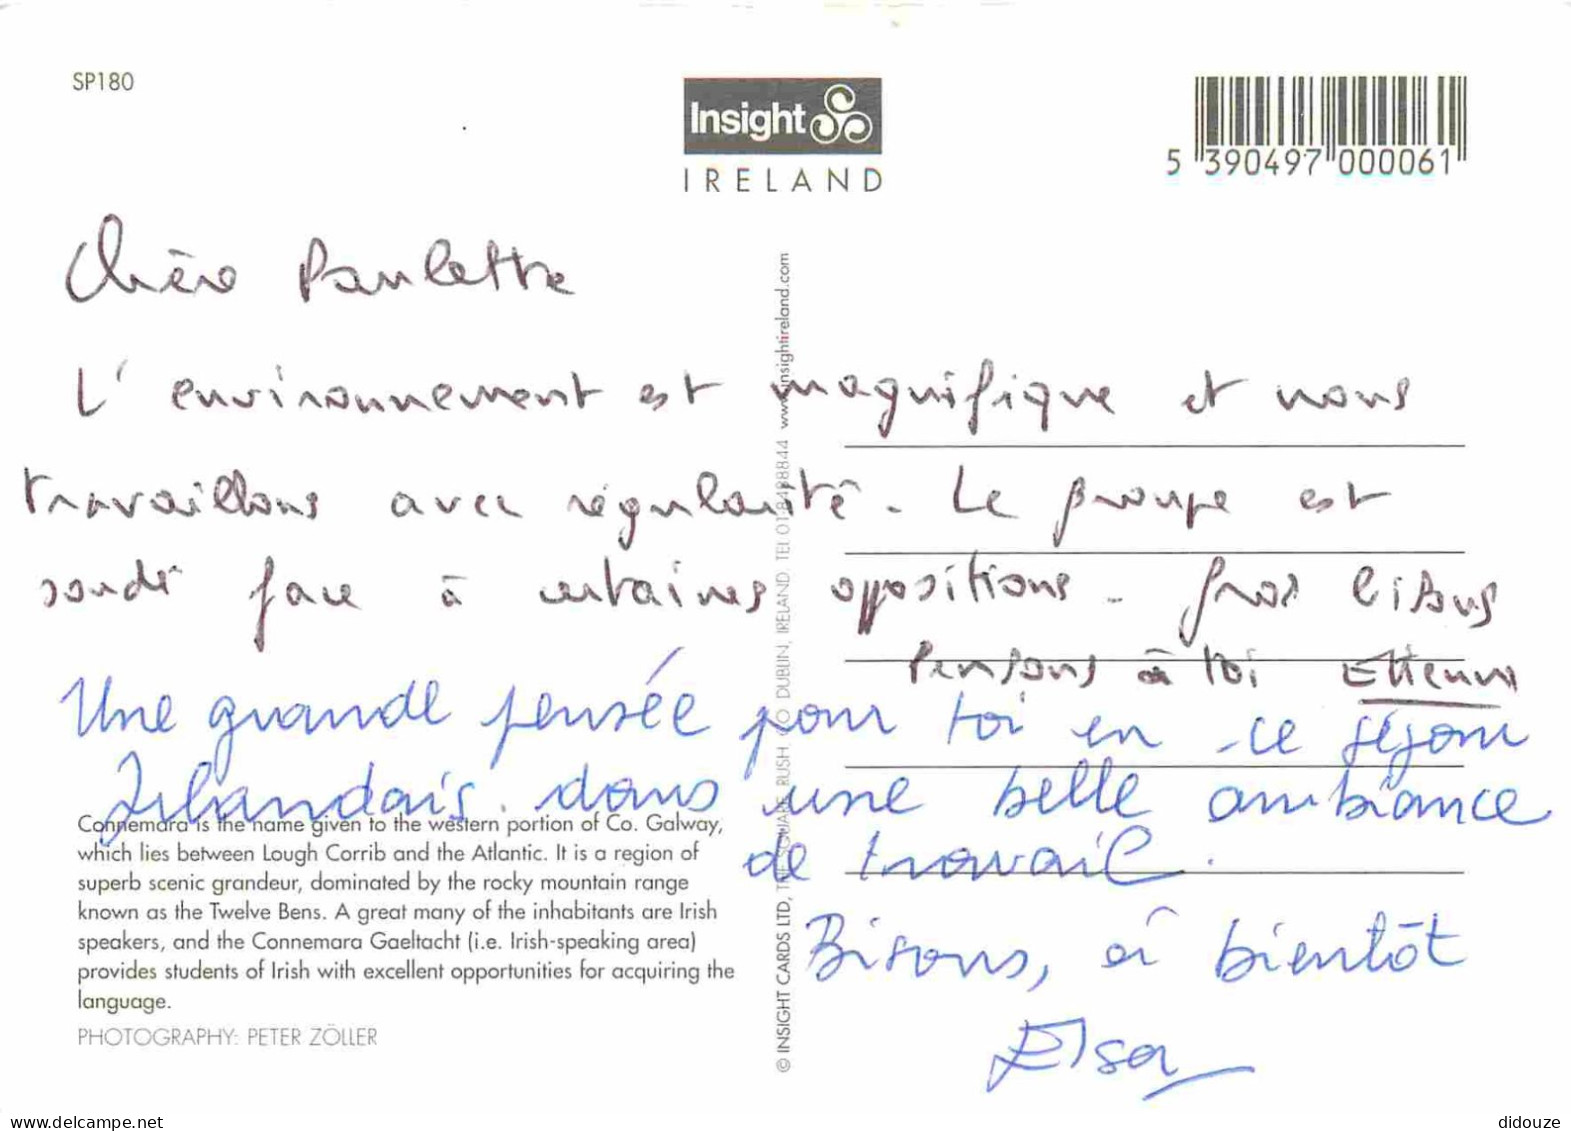 SP180
Insight
IRELAND
5 390497 000061
Chère Paulette
L'environnement est magnifique et nous
travaillons avec régularité. Le groupe est
soudé face à certaines oppositions. Gros bisous
Pensons à toi Etienne
Une grande pensée pour toi en ce séjour
Irlandais dans une belle ambiance
de travail.
Bisous, à bientôt
Elsa
Connemara is the name given to the western portion of Co. Galway,
which lies between Lough Corrib and the Atlantic. It is a region of
superb scenic grandeur, dominated by the rocky mountain range
known as the Twelve Bens. A great many of the inhabitants are Irish
speakers, and the Connemara Gaeltacht (i.e. Irish-speaking area)
provides students of Irish with excellent opportunities for acquiring the
language.
PHOTOGRAPHY: PETER ZÖLLER
© INSIGHT CARDS LTD, THE SQUARE, RUSH, CO DUBLIN, IRELAND. TEL 01 8498844 www.insightireland.com
www.delcampe.net
didouze